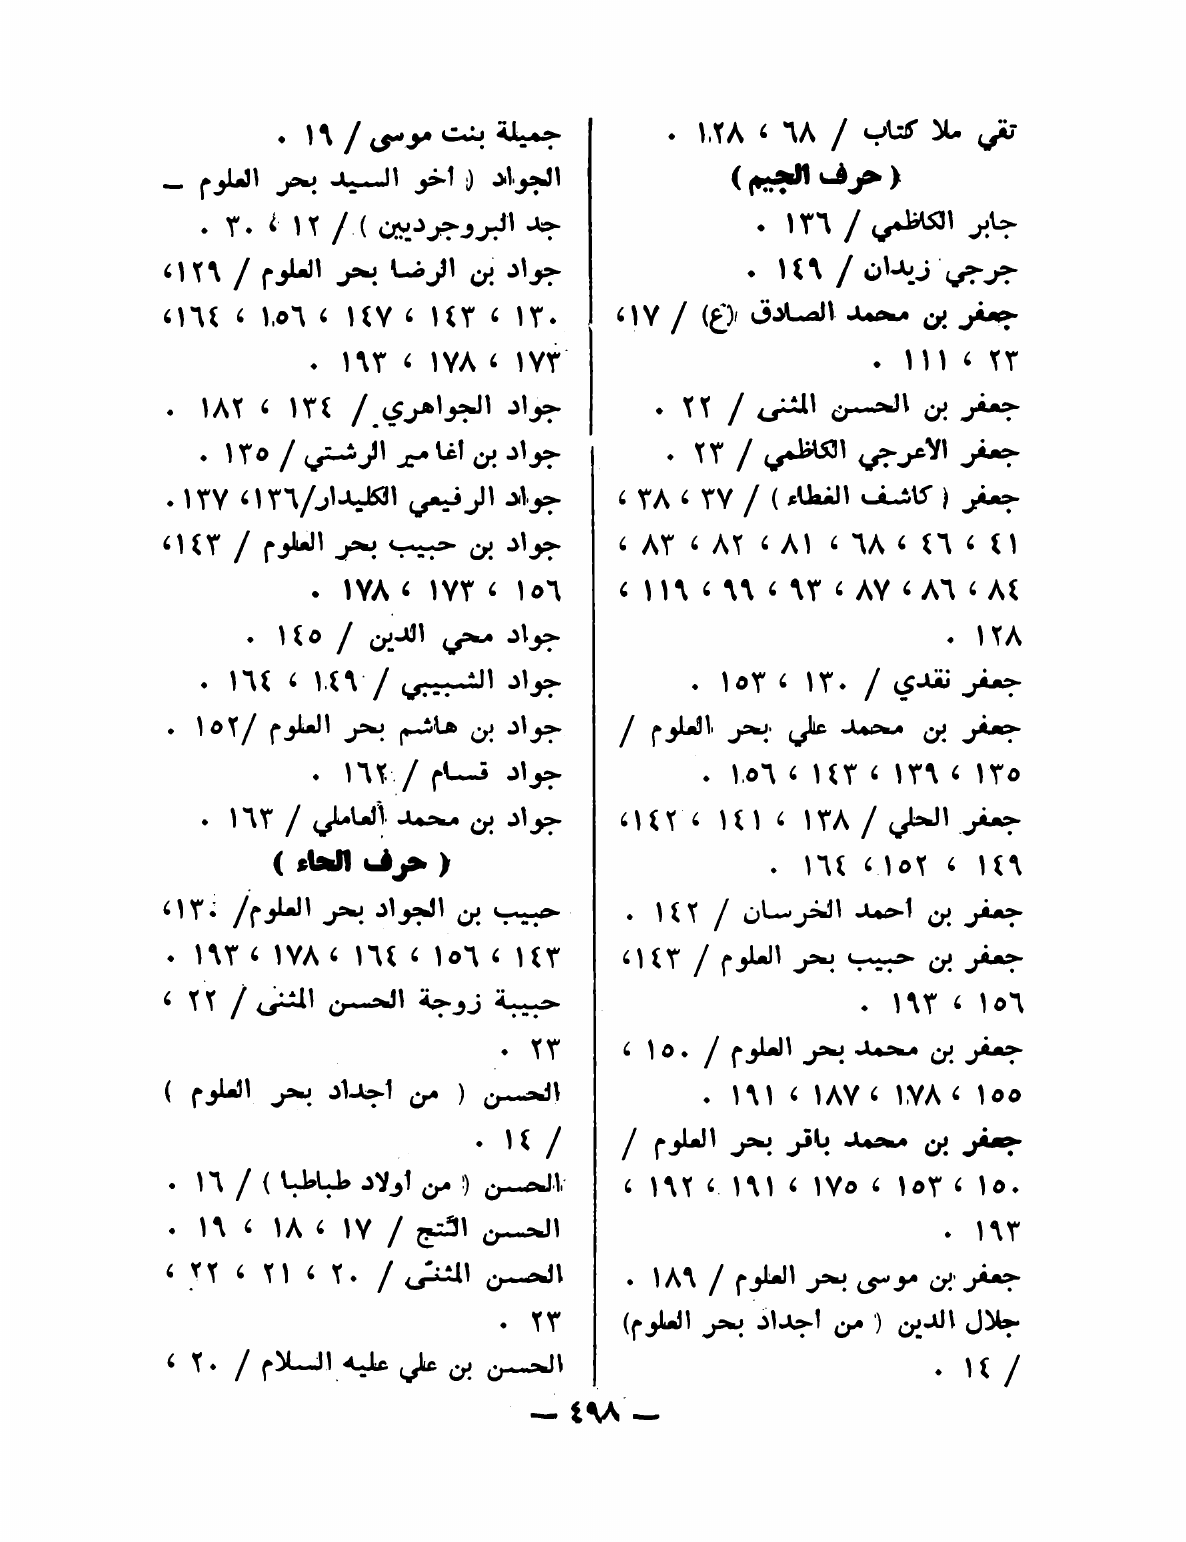 تقي ملا كتاب / ٦٨ ، ١٢٨ .
( حرف الجيم )
جابر الكاظمي / ١٣٦ .
جرجي زيدان / ١٤٩ .
جعفر بن محمد الصادق (ع) / ١٧،
٢٣ ، ١١١ .
جعفر بن الحسن المثنى / ٢٢ .
جعفر الأعرجي الكاظمي / ٢٣ .
جعفر ( كاشف الغطاء ) / ٣٧ ، ٣٨ ،
٤١ ، ٤٦ ، ٦٨ ، ٨١ ، ٨٢ ، ٨٣ ،
٨٤ ، ٨٦ ، ٨٧ ، ٩٣ ، ٩٩ ، ١١٩ ،
١٢٨ .
جعفر نقدي / ١٣٠ ، ١٥٣ .
جعفر بن محمد علي بحر العلوم /
١٣٥ ، ١٣٩ ، ١٤٣ ، ١٥٦ .
جعفر الحلي / ١٣٨ ، ١٤١ ، ١٤٢،
١٤٩ ، ١٥٢ ، ١٦٤ .
جعفر بن أحمد الخرسان / ١٤٢ .
جعفر بن حبيب بحر العلوم / ١٤٣،
١٥٦ ، ١٩٣ .
جعفر بن محمد بحر العلوم / ١٥٠ ،
١٥٥ ، ١٧٨ ، ١٨٧ ، ١٩١ .
جعفر بن محمد باقر بحر العلوم /
١٥٠ ، ١٥٣ ، ١٧٥ ، ١٩١ ، ١٩٢ ،
١٩٣ .
جعفر بن موسى بحر العلوم / ١٨٩ .
جلال الدين ( من أجداد بحر العلوم)
/ ١٤ .
جميلة بنت موسى / ١٩ .
الجواد ( أخو السيد بحر العلوم –
جد البروجرديين ) / ١٢ ، ٣٠ .
جواد بن الرضا بحر العلوم / ١٢٩،
١٣٠ ، ١٤٣ ، ١٤٧ ، ١٥٦ ، ١٦٤،
١٧٣ ، ١٧٨ ، ١٩٣ .
جواد الجواهري / ١٣٤ ، ١٨٢ .
جواد بن أغا مير الرشتي / ١٣٥ .
جواد الرفيعي الكليدار/١٣٦، ١٣٧ .
جواد بن حبيب بحر العلوم / ١٤٣،
١٥٦ ، ١٧٣ ، ١٧٨ .
جواد محي الدين / ١٤٥ .
جواد الشبيبي / ١٤٩ ، ١٦٤ .
جواد بن هاشم بحر العلوم /١٥٢ .
جواد قسام / ١٦٢ .
جواد بن محمد العاملي / ١٦٣ .
( حرف الحاء )
حبيب بن الجواد بحر العلوم/ ١٣٠،
١٤٣ ، ١٥٦ ، ١٦٤ ، ١٧٨ ، ١٩٣ .
حبيبة زوجة الحسن المثنى / ٢٢ ،
٢٣ .
الحسن ( من أجداد بحر العلوم )
/ ١٤ .
الحسن ( من أولاد طباطبا ) / ١٦ .
الحسن التّج / ١٧ ، ١٨ ، ١٩ .
الحسن المثنّى / ٢٠ ، ٢١ ، ٢٢ ،
٢٣ .
الحسن بن علي عليه السلام / ٢٠ ،
– ٤٩٨ –